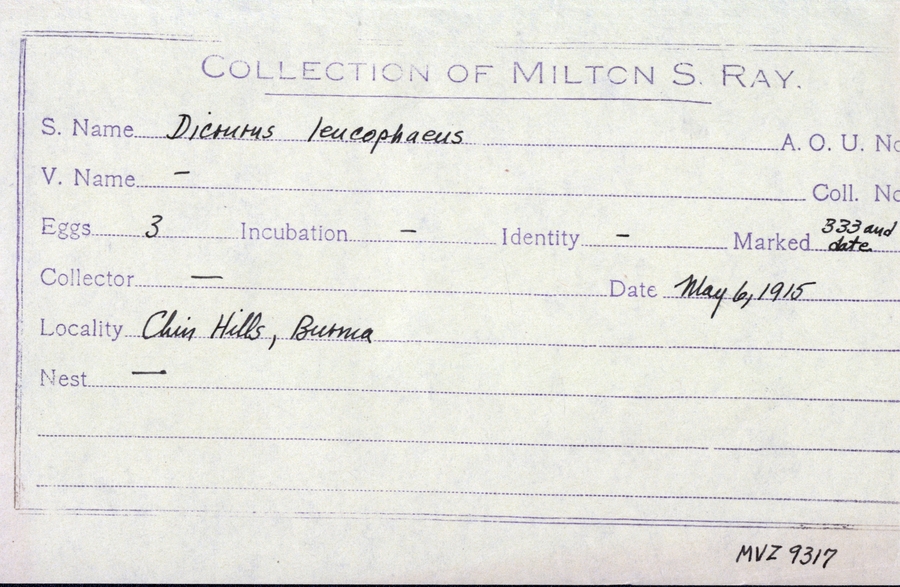 COLLECTION OF MILTON S. RAY.
S. Name Dicrurus leucophaeus A. O. U. No
V. Name – Coll. No
Eggs 3 Incubation – Identity – Marked 333 and date
Collector —
Date May 6, 1915
Locality Chin Hills, Burma
Nest —
MVZ 9317